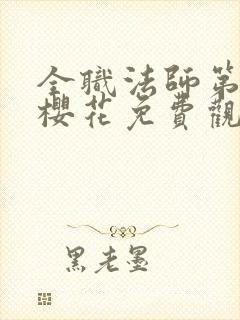 全職法師第
櫻花免費觀
黑老墨